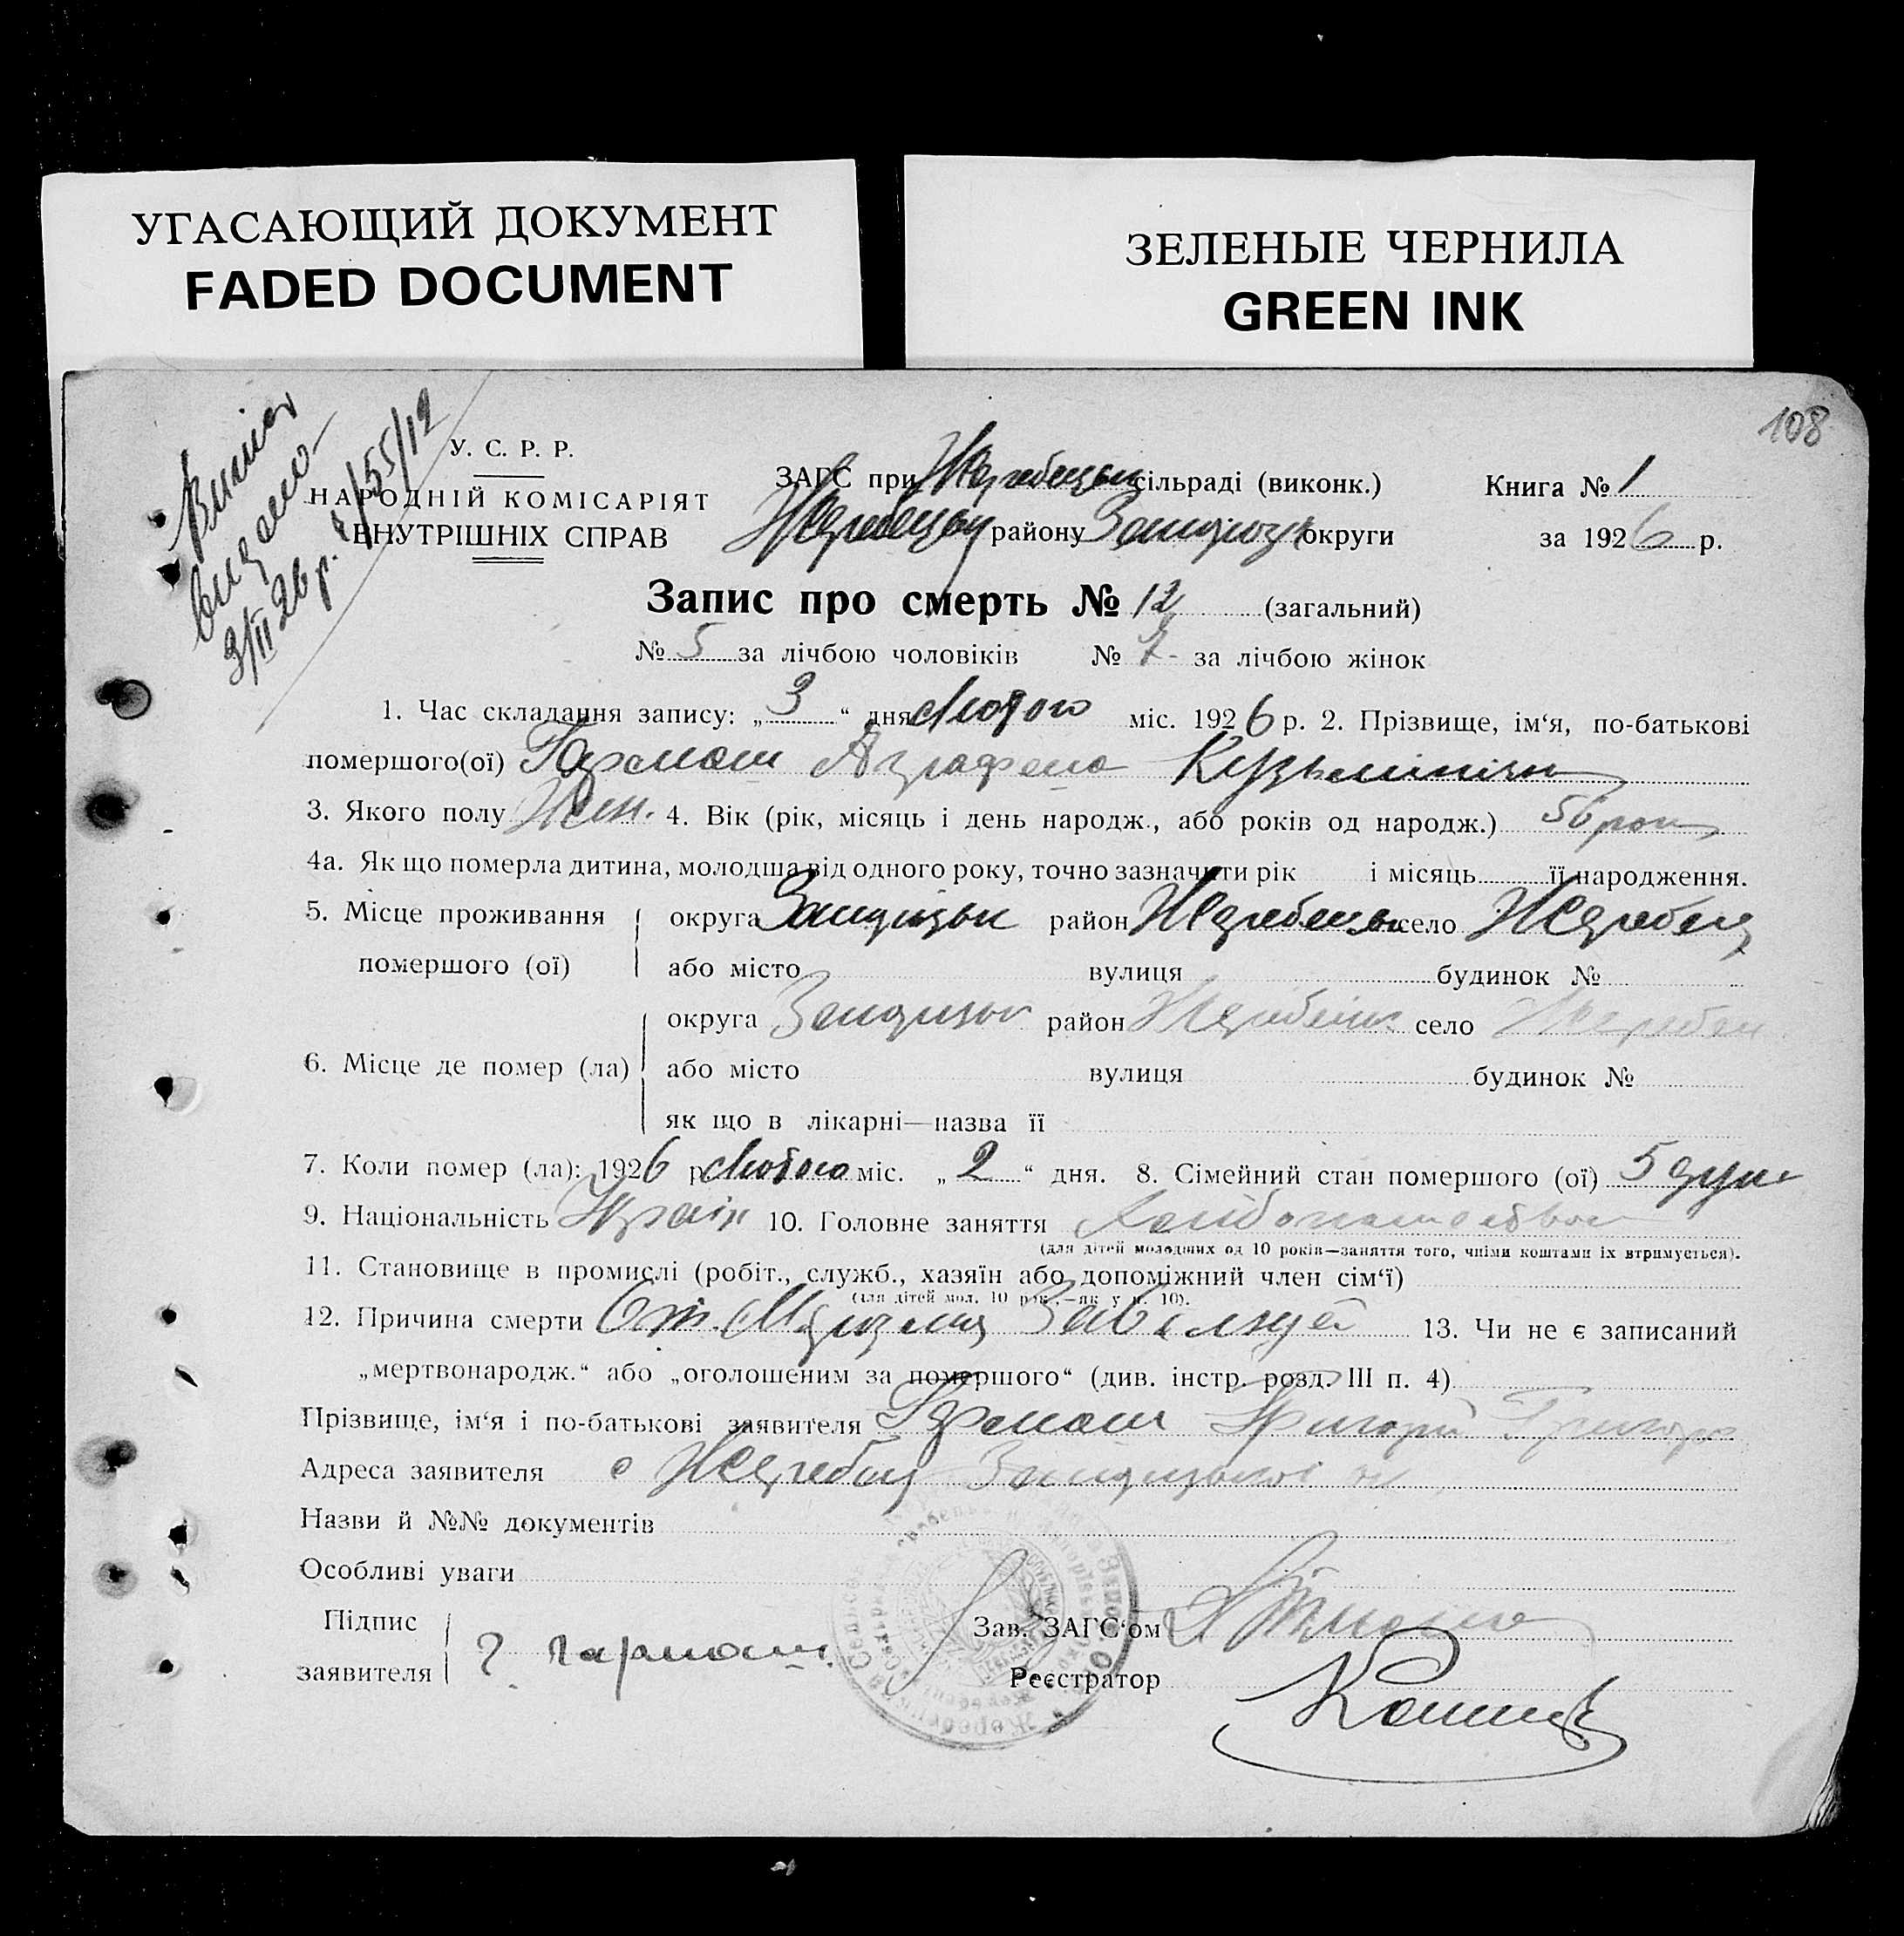 УГАСАЮЩИЙ ДОКУМЕНТ
FADED DOCUMENT
ЗЕЛЕНЫЕ ЧЕРНИЛА
GREEN INK
108
Витяг
видано
3/II 26 р. 155/12
У. С. Р. Р.
НАРОДНІЙ КОМІСАРІЯТ
ВНУТРІШНІХ СПРАВ
ЗАГС при Жеребецьк сільраді (виконк.)
Жеребецьк району Запорізьк округи
Книга № 1
за 1926 р.
Запис про смерть № 12 (загальний)
№ 5 за лічбою чоловіків № 7 за лічбою жінок
1. Час складання запису: „3“ дня Лютого міс. 1926 р. 2. Прізвище, ім‘я, по-батькові
помершого(ої) Гармаш Аграфена Кузьмінішна
3. Якого полу Жен. 4. Вік (рік, місяць і день народж., або років од народж.) 56 рок
4а. Як що померла дитина, молодша від одного року, точно зазначити рік і місяць її народження.
5. Місце проживання округа район Жеребецьк село Жеребец
помершого (ої) або місто вулиця будинок №
округа район село
6. Місце де помер (ла) або місто вулиця будинок №
як що в лікарні—назва її
7. Коли помер (ла): 1926 р Лютого міс. „2“ дня. 8. Сімейний стан помершого (ої) 5 душ
9. Національність Україн 10. Головне заняття
(для дітей молодших од 10 років—заняття того, чиїми коштами їх втримується).
11. Становище в промислі (робіт., служб., хазяїн або допоміжний член сім‘ї)
(для дітей мол. 10 рок.—як у п. 10).
12. Причина смерти От 13. Чи не є записаний
„мертвонародж.“ або „оголошеним за помершого“ (див. інстр. розд. III п. 4)
Прізвище, ім‘я і по-батькові заявителя Гармаш Григорій Григоро
Адреса заявителя с Жеребец
Назви й №№ документів
Особливі уваги
Підпис
заявителя Г Гармаш.
Зав. ЗАГС‘ом
Реєстратор